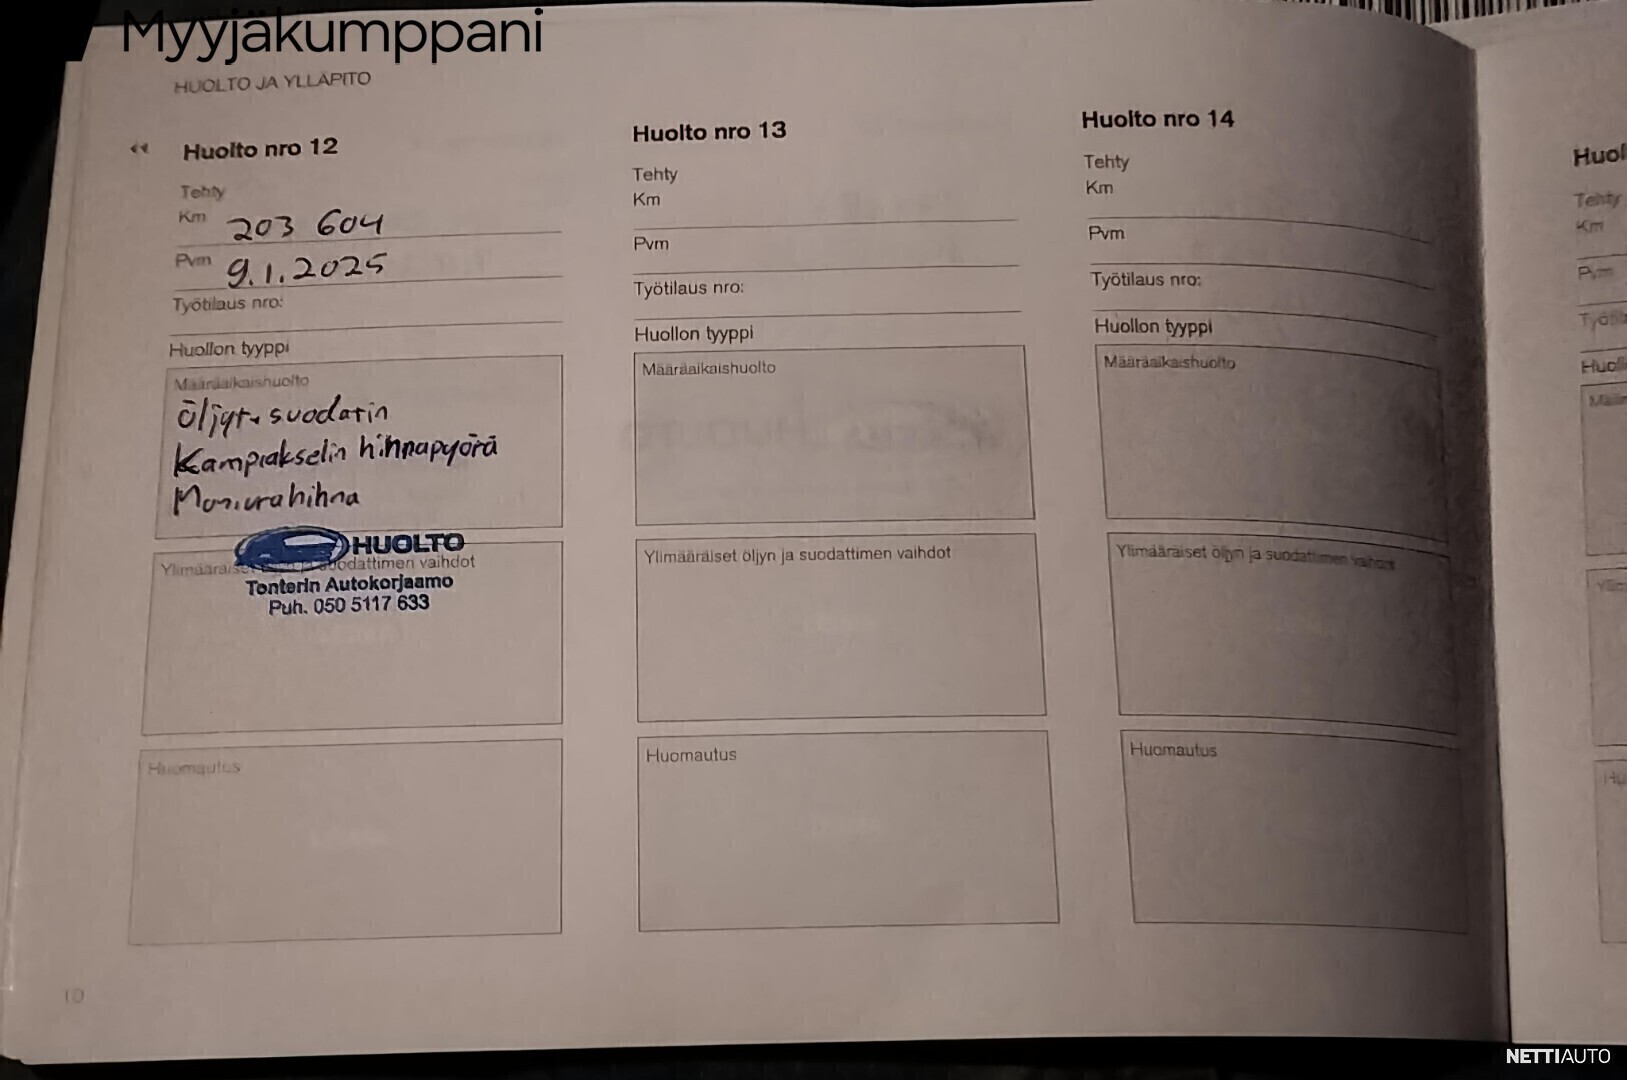 Myyjäkumppani
HUOLTO JA YLLÄPITO
Huolto nro 12
Tehty
Km 203 604
Pvm 9.1.2025
Työtilaus nro:
Huollon tyyppi
Määräaikaishuolto
Öljyt + suodatin
Kampiakselin hihnapyörä
Moniurahihna
HUOLTO
Ylimääräiset öljyn ja suodattimen vaihdot
Tonterin Autokorjaamo
Puh. 050 5117 633
Huomautus
10
Huolto nro 13
Tehty
Km
Pvm
Työtilaus nro:
Huollon tyyppi
Määräaikaishuolto
Ylimääräiset öljyn ja suodattimen vaihdot
Huomautus
Huolto nro 14
Tehty
Km
Pvm
Työtilaus nro:
Huollon tyyppi
Määräaikaishuolto
Ylimääräiset öljyn ja suodattimen vaihdot
Huomautus
Huol
Tehty
Km
Pvm
NETTIAUTO